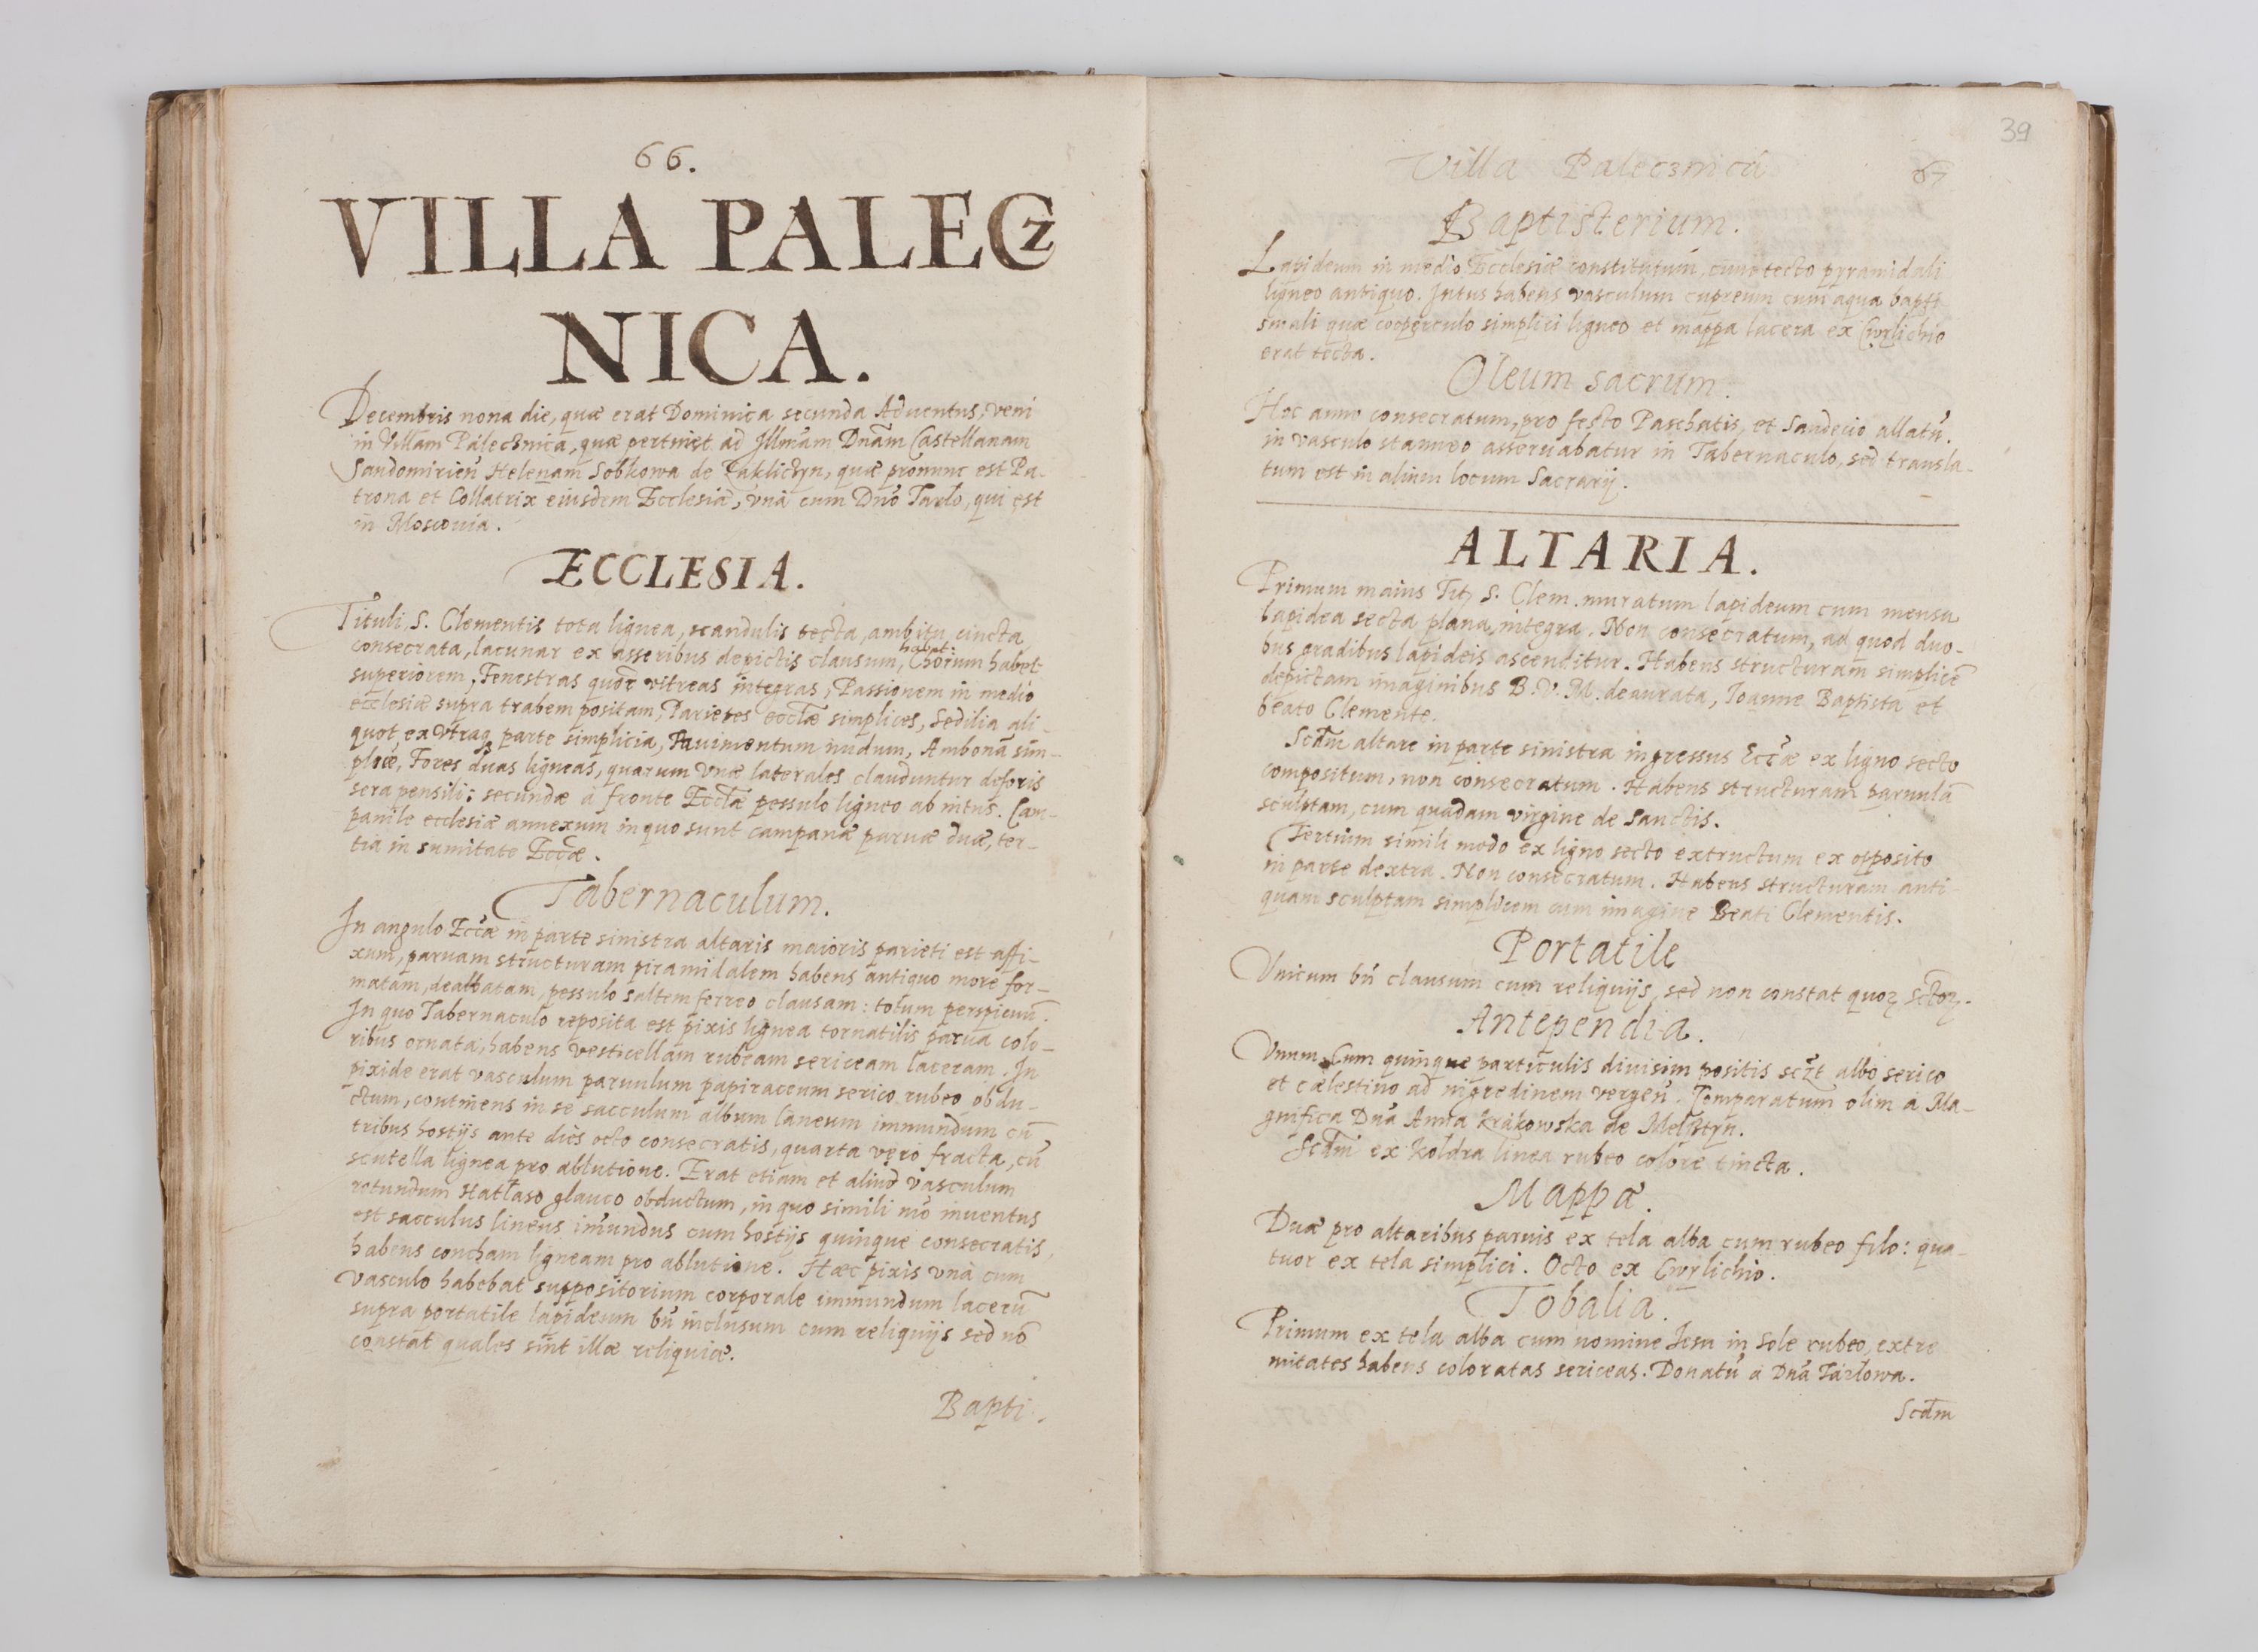 66.
VILLA PALECZ
NICA.
Decembris nona die, quæ erat Dominica secunda Aduentus, veni
in Villam Palecznica, quæ pertinet ad Illm̃am Dnãm Castellanam
Sandomirieñ Helenam Sobkowa de Zakliczyn, quæ pronunc est Pa-
trona et Collatrix eiusdem Ecclesiæ, vnà cum Dnõ Tarlo, qui est
in Moscouia.
ECCLESIA.
Tituli S. Clementis tota lignea, scandulis tecta, ambitu cincta
consecrata, lacunar ex asseribus depictis clausum, habet: Chorum habet
superiorem, Fenestras quõr vitreas integras, Passionem in medio
ecclesiæ supra trabem positam, Parietes eccl̃æ simplices, Sedilia ali-
quot ex vtraq parte simplicia, Pauimentum nudum, Ambonã sim-
plicẽ, Fores duas ligneas, quarum vnæ laterales clauduntur deforis
sera pensili: secundæ à fronte Eccl̃æ pessulo ligneo ab intus. Cam-
panile ecclesiæ annexum in quo sunt campanæ paruæ duæ, ter-
tia in sumitate Ecc̃æ.
Tabernaculum.
In angulo Ecc̃æ in parte sinistra altaris maioris parieti est affi-
xum, paruam structuram piramidalem habens antiquo more for-
matam, dealbatam, pessulo saltem ferreo clausam: totum perspicuũ.
In quo Tabernaculo reposita est pixis lignea tornatilis parua colo-
ribus ornata, habens vesticellam rubeam sericeam laceram. In
pixide erat vasculum paruulum papiraceum serico rubeo obdu-
ctum, continens in se sacculum album laneum immundum cũ
tribus hostijs ante dies octo consecratis, quarta vero fracta, cũ
scutella lignea pro ablutione. Erat etiam et aliud vasculum
rotundum Hatłaso glauco obductum, in quo simili mõ inuentus
est sacculus lineus im̃undus cum hostijs quinque consecratis,
habens concham ligneam pro ablutione. Hæc pixis vnà cum
vasculo habebat suppositorium corporale immundum lacerũ
supra portatile lapideum bñ inclusum cum reliquijs sed nõ
constat quales sint illæ reliquiæ.
Bapti.
39
Villa Palecznica
67
Baptisterium.
Lapideum in medio Ecclesiæ constitutum, cum tecto pyramidali
ligneo antiquo. Intus habens vasculum cupreum cum aqua bapti
smali quæ cooperculo simplici ligneo et mappa lacera ex Cwrlichio
erat tecta.
Oleum sacrum.
Hoc anno consecratum, pro festo Paschatis, et Sandecio allatũ.
in vasculo stanneo asseruabatur in Tabernaculo, sed transla-
tum est in alium locum Sacrarij.
ALTARIA.
Primum maius Tit, S. Clem. muratum lapideum cum mensa
lapidea secta plana, integra. Non consecratum, ad quod duo-
bus gradibus lapideis ascenditur. Habens structuram simplicẽ
depictam imaginibus B. V. M. deaurata, Ioanne Baptista et
beato Clemente.
Scdm̃ altare in parte sinistra ingressus Ecc̃æ ex ligno secto
compositum, non consecratum. Habens structuram paruulã
sculptam, cum quadam virgine de Sanctis.
Tertium simili modo ex ligno secto extructum ex opposito
in parte dextra. Non consecratum. Habens structuram anti-
quam sculptam simplicem cum imagine Beati Clementis.
Portatile
Vnicum bñ clausum cum reliquijs, sed non constat quoꝝ sctõꝝ.
Antependia.
Vnum Cum quinque particulis diuisim positis sczt albo serico
et cælestino ad nigredinem vergeñ. Comparatum olim à Ma-
gnifica Dña Anna Krakowska de Melsztyn.
Scdm̃ ex koldra linea rubeo colore tincta.
Mappæ.
Duæ pro altaribus paruis ex tela alba cum rubeo filo: qua-
tuor ex tela simplici. Octo ex Cwrlichio.
Tobalia.
Primum ex tela alba cum nomine Iesu in Sole rubeo, extre
mitates habens coloratas sericeas. Donatũ à Dña Tarłowa.
Scdm̃